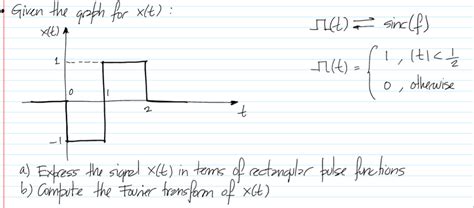 Given the graph for x(t) :
Π(t) ⇌ sinc(f)
x(t)
1
Π(t) = { 1 , |t| < 1/2
0 , otherwise
0
1
2
t
-1
a) Express the signal x(t) in terms of rectangular pulse functions
b) Compute the Fourier transform of x(t)